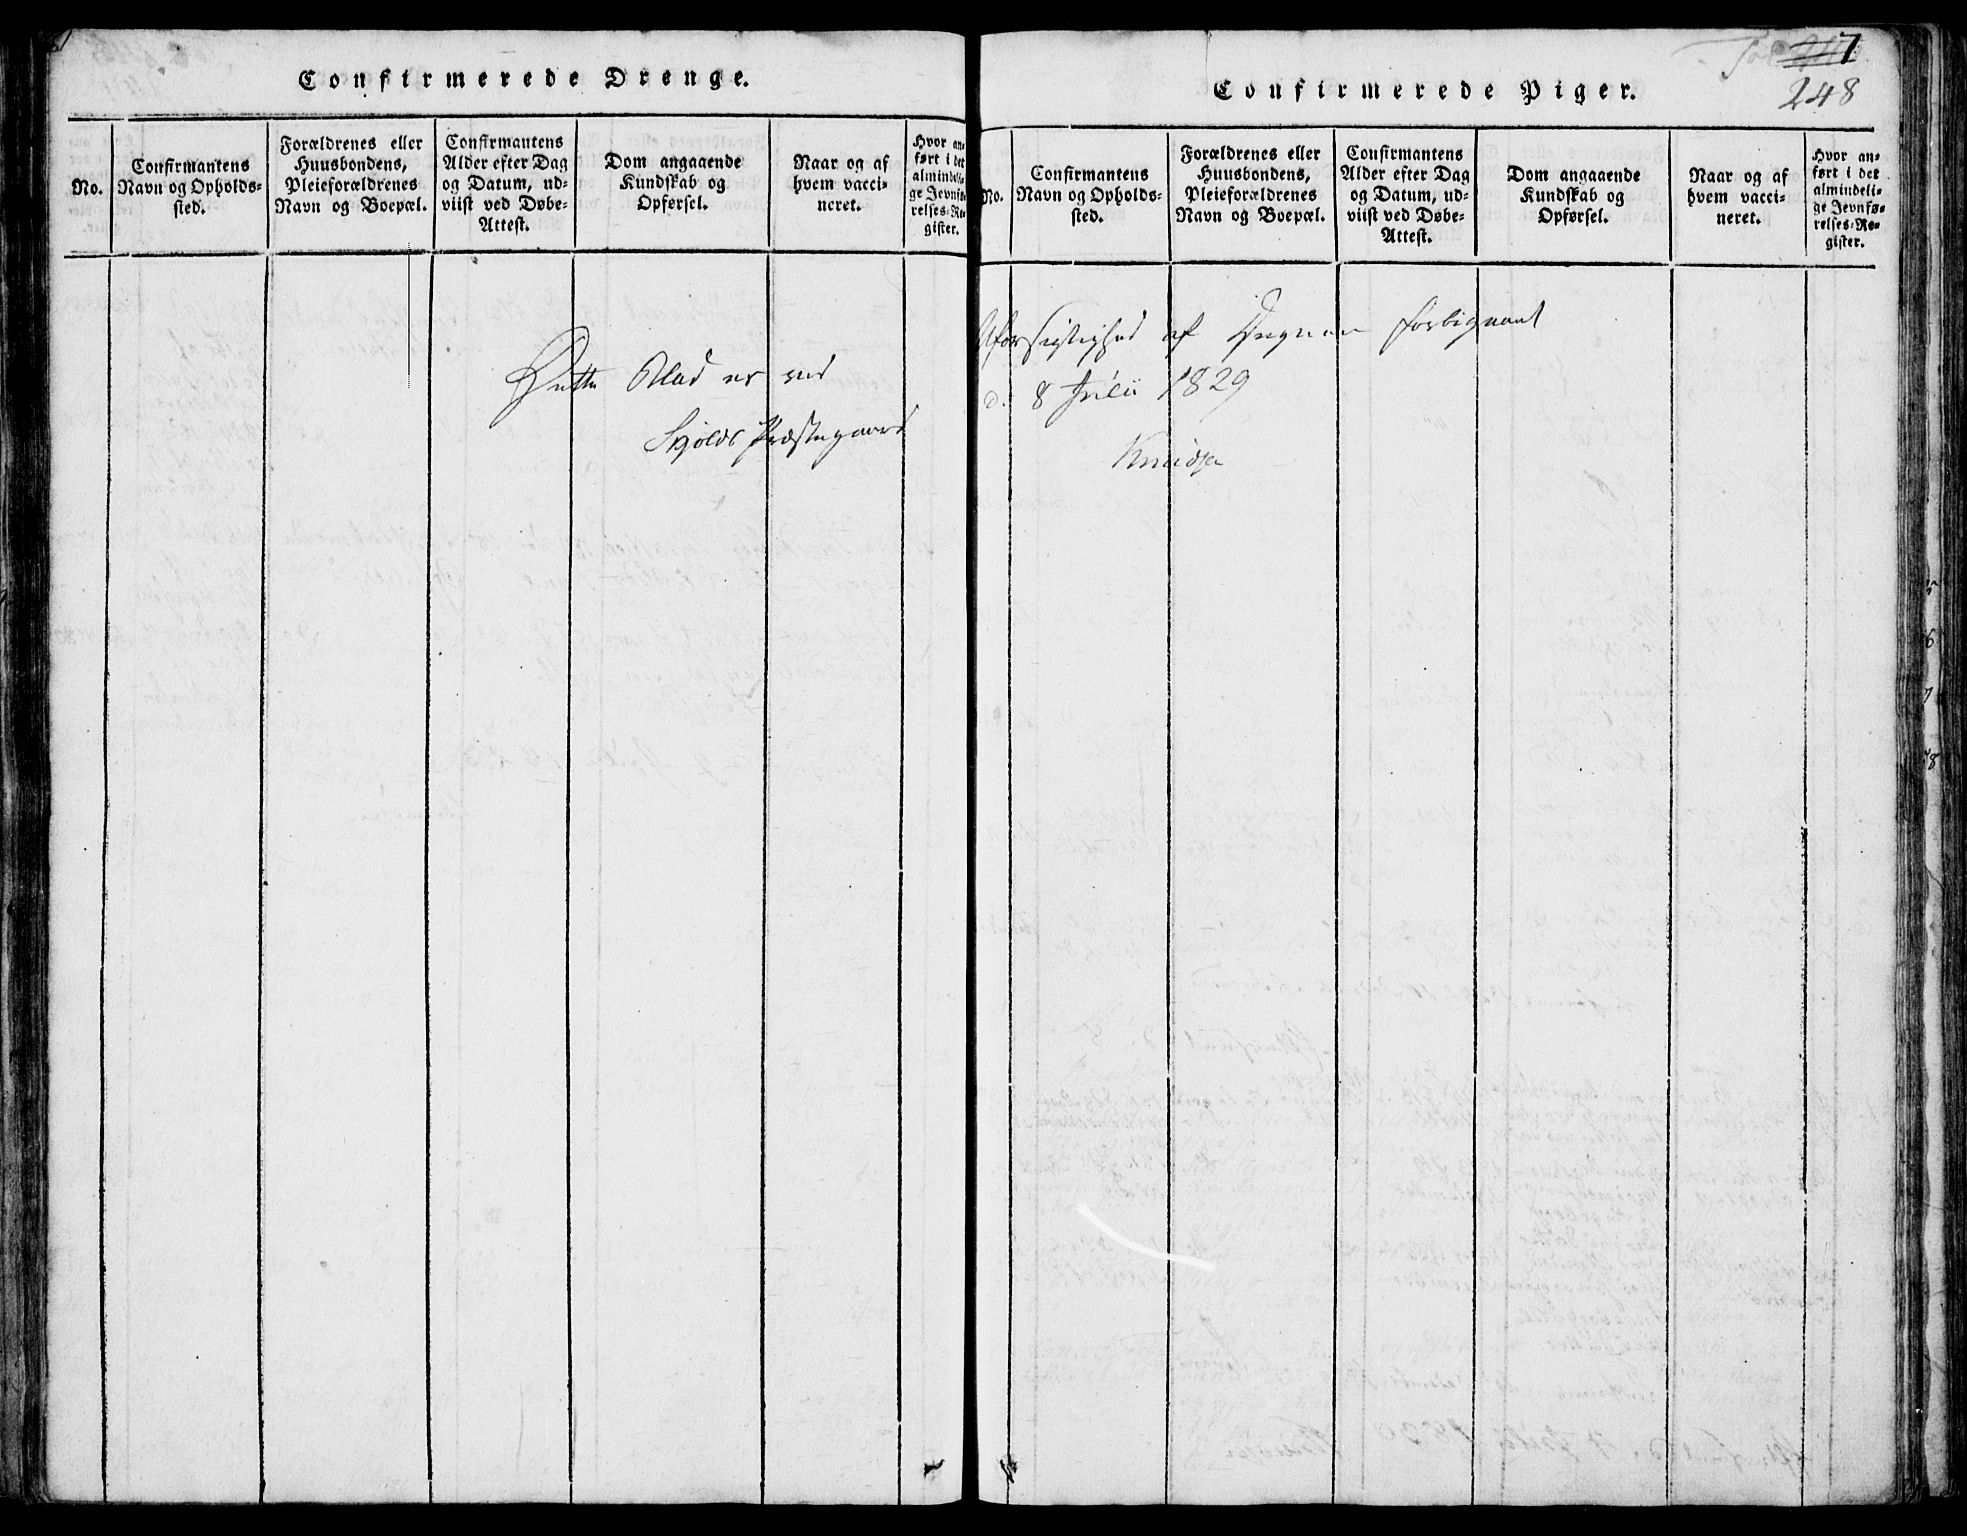 Confirmerede Drenge.
No.
Confirmantens
Navn og Opholds-
sted.
Forældrenes eller
Huusbondens,
Pleieforældrenes
Navn og Boepæl.
Confirmantens
Alder efter Dag
og Datum, ud-
viist ved Døbe-
Attest.
Dom angaaende
Kundskab og
Opførsel.
Naar og af
hvem vacci-
neret.
Hvor an-
ført i det
almindeli-
ge Jevnfø-
relses-Re-
gister.
Dette Blad er ved
Skjolds Præstegaard
Confirmerede Piger.
248
No.
Confirmantens
Navn og Opholds-
sted.
Forældrenes eller
Huusbondens,
Pleieforældrenes
Navn og Boepæl.
Confirmantens
Alder efter Dag
og Datum, ud-
viist ved Døbe-
Attest.
Dom angaaende
Kundskab og
Opførsel.
Naar og af
hvem vacci-
neret.
Hvor an-
ført i det
almindeli-
ge Jevnfø-
relses-Re-
gister.
Uforsigtighed af Degnen forbigaaet
d. 8 Julii 1829
Knudsen